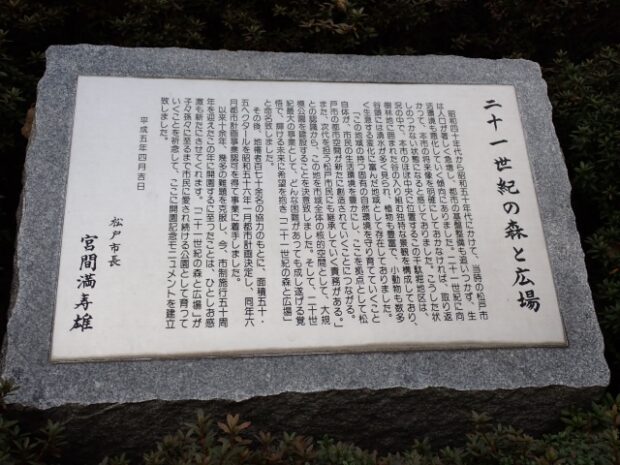 二十一世紀の森と広場
昭和四十年代から昭和五十年代にかけて、当時の松戸市
は人口が著しく急増し、都市の基盤整備も追いつかず、生
活環境も悪化していく傾向にありました。二十一世紀に向
かって、本市の将来像を明確にしておかなければ、取り返
しのつかない状態になると感じておりました。こうした状
況の中で、本市のほぼ中央に位置するこの千駄堀地区は、
樹林地に囲まれた谷の入り組む独特な景観を構成しており、
谷頭には湧水が多く見られ、植物も豊富で、小動物も数多
く生息する変化に富んだ地域として存在しておりました。
「この地域の持つ固有の自然環境を守り育てていくこと
自体が、市民の生活環境を豊かにし、ここを拠点として松
戸市の都市空間が新たに創造されていくことにつながる。」
また、次代を担う松戸市民にも継承していく責務がある。」
との認識から、この地を市域全体の核的空間として、大規
模公園を建設することを決意致しました。そして、二十世
紀最大の事業として、どんな困難があっても成し遂げる覚
悟で、輝ける未来に希望を抱き「二十一世紀の森と広場」
と命名致しました。
その後、地権者百七十余名の協力のもとに、面積五十・
五ヘクタールを昭和五十六年一月都市計画決定し、同年六
月都市計画事業認可を得て事業に着手しました。
以来十余年、幾多の難題を克服し、今、市制施行五十周
年を迎えたこの年に開園する事に至ったことは、ひとしお感
激も新たにさせてくれます。「二十一世紀の森と広場」が
子々孫々に至るまで市民に愛され続ける公園として育って
いくことを祈念して、ここに開園記念モニュメントを建立
致しました。
平成五年四月吉日
松戸市長
宮間満寿雄